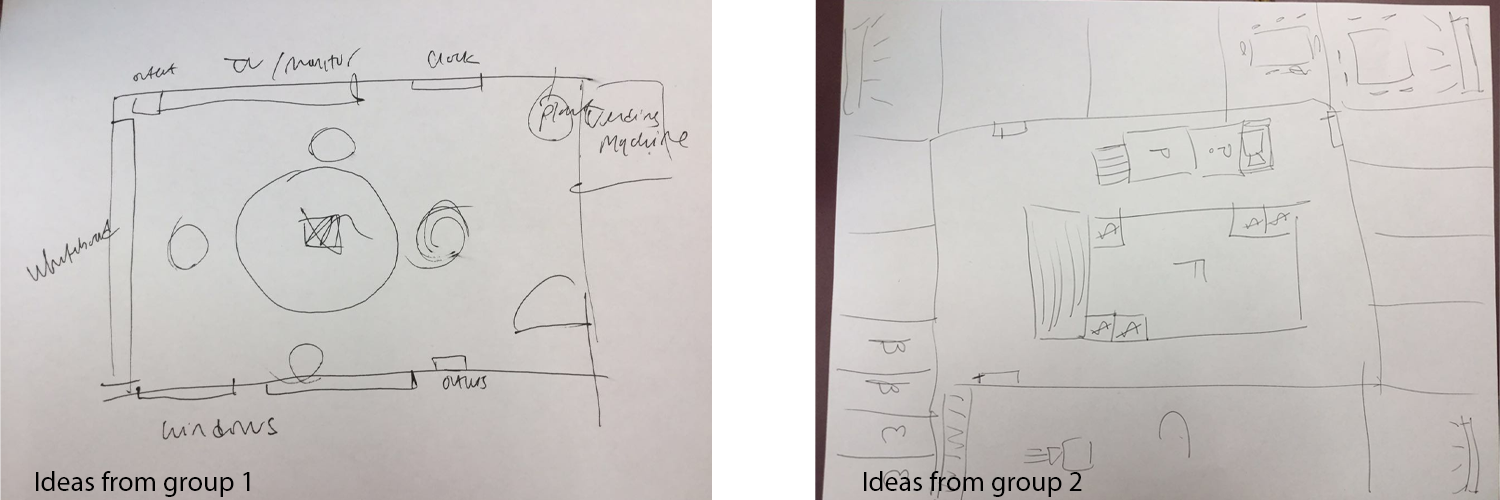 outlet
TV / monitor
Clock
Plant
Vending
Machine
Whiteboard
outlets
windows
Ideas from group 1
P
Po
A
A
A
F
A
A
B
B
E
B
C
Ideas from group 2